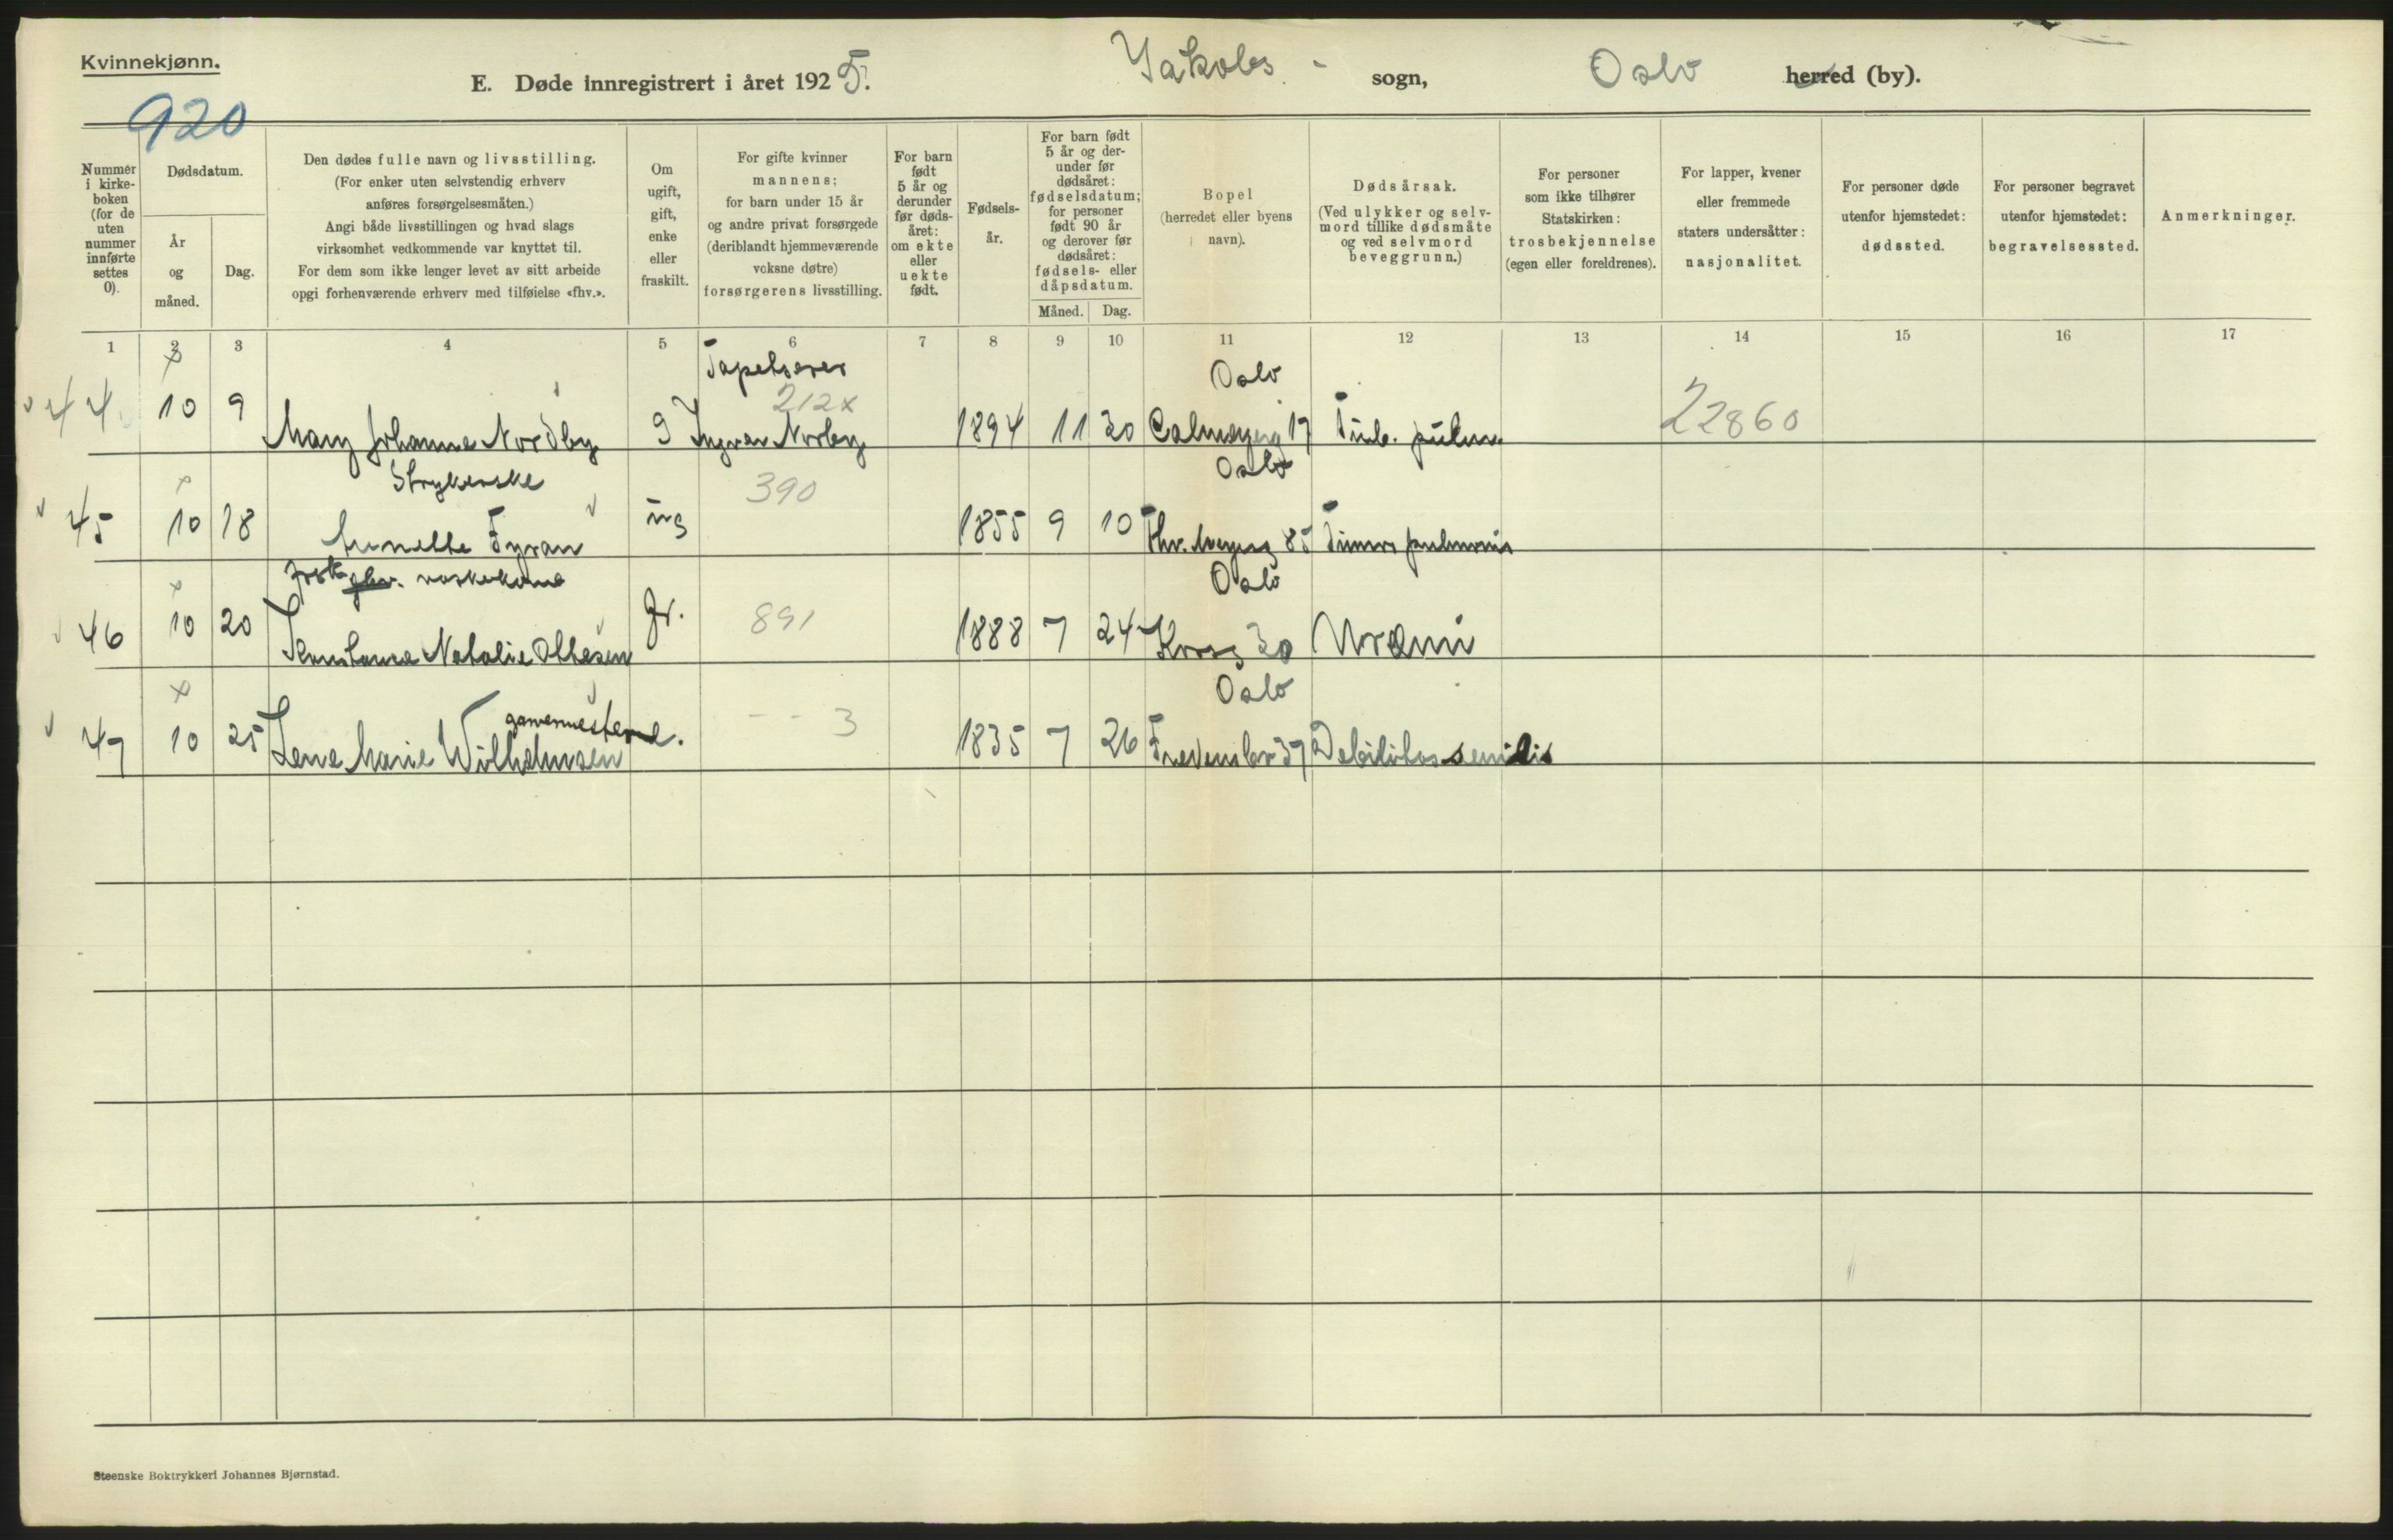 Kvinnekjønn.
E. Døde innregistrert i året 1925.
Jakobs - sogn,
Oslo herred (by).
920
Nummer i kirke-boken (for de uten nummer innførte settes 0).
Dødsdatum.
År og måned.
Dag.
Den dødes fulle navn og livsstilling.
(For enker uten selvstendig erhverv
anføres forsørgelsesmåten.)
Angi både livsstillingen og hvad slags
virksomhet vedkommende var knyttet til.
For dem som ikke lenger levet av sitt arbeide
opgi forhenværende erhverv med tilføielse «fhv.».
Om
ugift,
gift,
enke
eller
fraskilt.
For gifte kvinner
mannens;
for barn under 15 år
og andre privat forsørgede
(deriblandt hjemmeværende
voksne døtre)
forsørgerens livsstilling.
For barn
født
5 år og
derunder
før døds-
året:
om ekte
eller
uekte
født.
Fødsels-
år.
For barn født
5 år og der-
under før
dødsåret:
fødselsdatum;
for personer
født 90 år
og derover før
dødsåret:
fødsels- eller
dåpsdatum.
Måned. Dag.
Bopel
(herredet eller byens
navn).
Dødsårsak.
(Ved ulykker og selv-
mord tillike dødsmåte
og ved selvmord
beveggrunn.)
For personer
som ikke tilhører
Statskirken:
trosbekjennelse
(egen eller foreldrenes).
For lapper, kvener
eller fremmede
staters undersåtter:
nasjonalitet.
For personer døde
utenfor hjemstedet:
dødssted.
For personer begravet
utenfor hjemstedet:
begravelsessted.
Anmerkninger.
1 2 3 4 5 6 7 8 9 10 11 12 13 14 15 16 17
Tapetserer Oslo
212x
44 10 9 Mary Johanne Nordby g Ingvar Norby 1894 11 30 Calmeyerg 17 Tub. pulm. 22860
Strykerske 390 Oslo
45 10 18 Fyran ug 1855 9 10 Thv. Meyersg 85 Tumor pulmonis
frsk. fhv. vaskekone Oslo
46 10 20 Konstanse Natalie Olsen gr. 891 1888 7 24 Korsg 30 Uræmi
Oslo
garvermester
47 10 25 Lene Marie Wilhelmsen -- 3 1835 7 26 Fredensbr 37 Debilitas senilis
Steenske Boktrykkeri Johannes Bjørnstad.